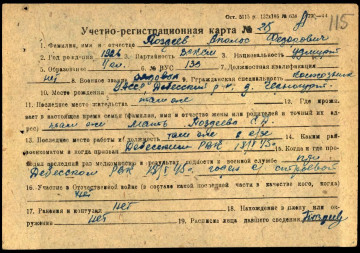 115
Учетно-регистрационная карта № 25
1. Фамилия, имя и отчество Поздеев Федорович
2. Год рождения 1926 3. Партийность ВЛКСМ 4. Национальность удмурт
5. Образование 4 кл. 6. № ВУС 133 7. Гражданская специальность колхозник
нет 8. Воинское звание рядовой
9.
10. Место рождения УАССР Дебесский р-н, д.
11. Последнее место жительства там же 12. Где прожи-
вает в настоящее время семья (фамилия, имя и отчество жены или родителей и точный их ад-
рес) там же Мать Поздеева
13. Последнее место работы и должность там же к/х
14. Каким рай-
военкоматом и когда призван Дебесским РВК 15. Когда и где про-
шел последний раз медосвидетельствование и результат годности к военной службе при
Дебесском РВК годен к строевой
16. Участие в Отечественной войне (в составе какой последней части в качестве кого, когда)
нет
17. Ранения и контузии нет 18. Нахождение в плену или ок-
ружении нет 19. Расписка лица давшего сведения